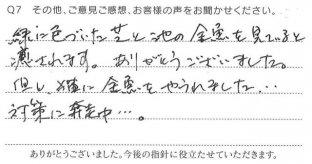 Q7 その他、ご意見ご感想、お客様の声をお聞かせください。
緑に色づいた芝と池の金魚を見ていると
癒されます。ありがとうございました。
但し、猫に金魚をやられました…
対策に奔走中…。
ありがとうございました。今後の指針に役立たせていただきます。